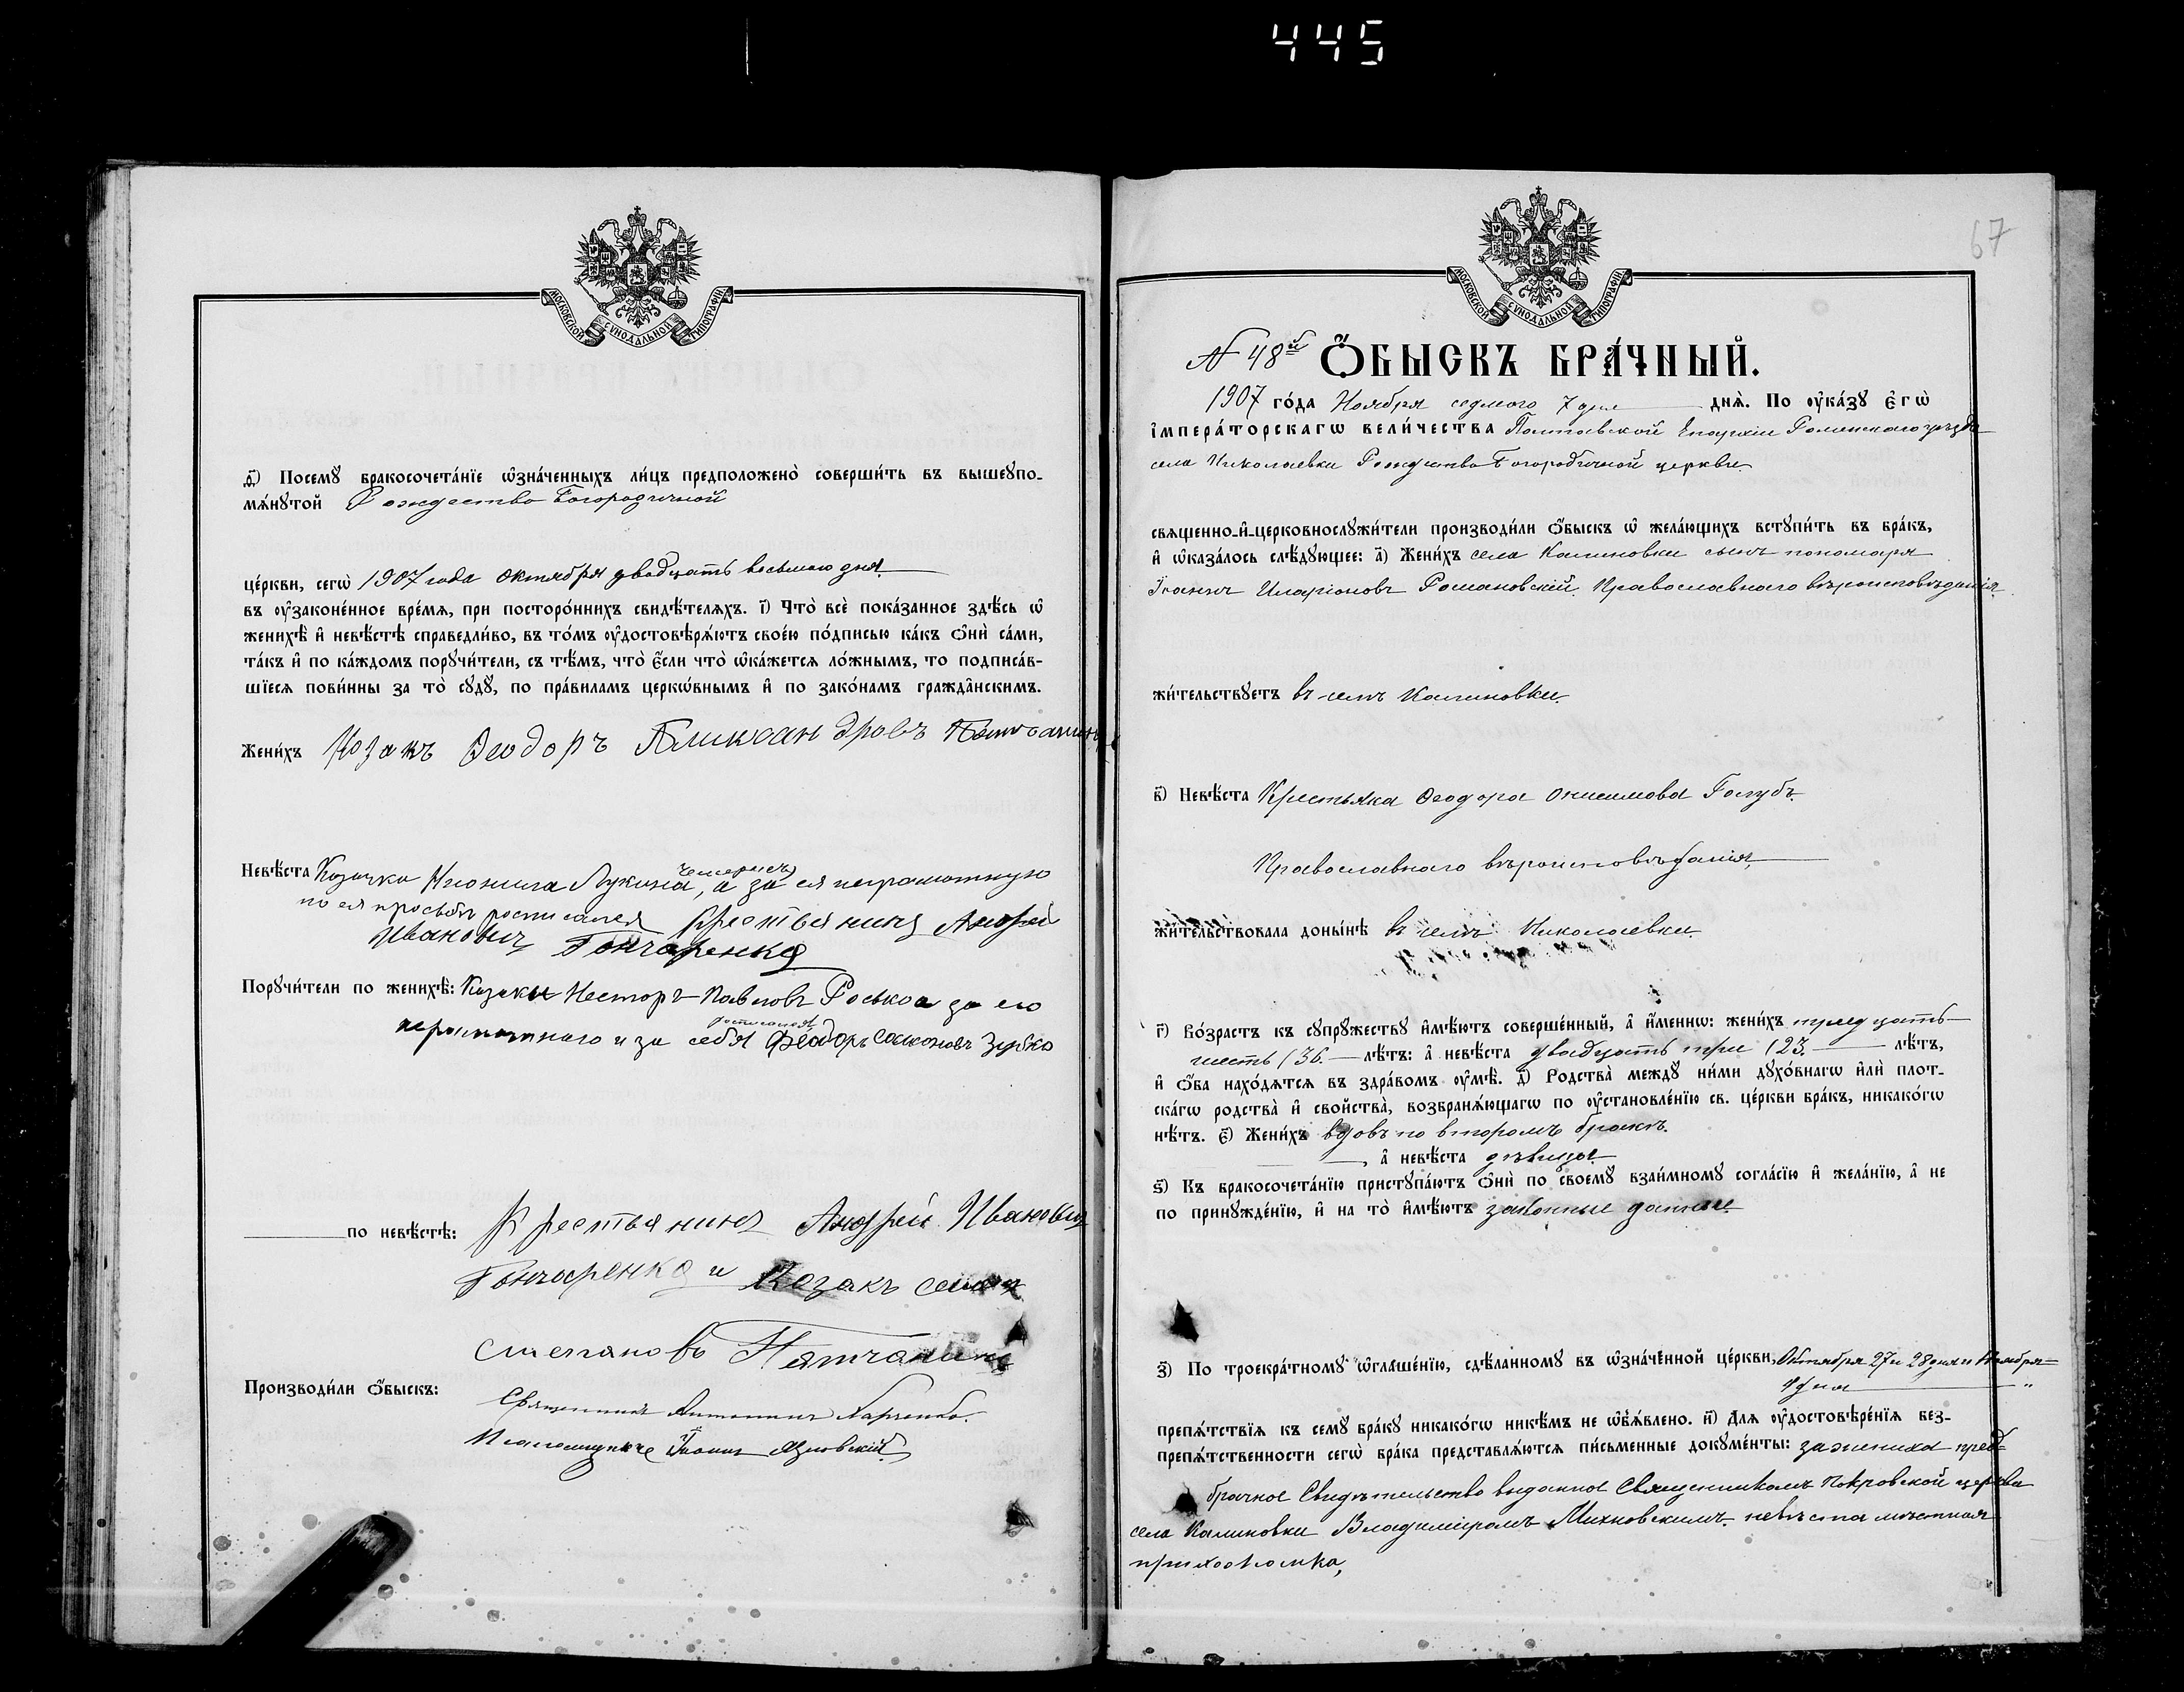 445
МОСКОВСКОЙ СѴНОДАЛЬНОЙ ТИПОГРАФІИ
ѳ҃) Посемꙋ̀ бракосочета́нїе ѡ҆зна́ченныхъ ли́цъ предположено̀ соверши́ть въ вышеꙋпо-
мѧ́нꙋтой Рождество Богородичной
це́ркви, сегѡ̀ 1907 года Октября двадцать восьмого дня
въ ᲂу҆законе́нное вре́мѧ, при посторо́ннихъ свидѣ́телѧхъ. і҃) Что̀ всѐ пока́занное здѣ́сь ѡ҆
женихѣ̀ и҆ невѣ́стѣ справедли́во, въ то́мъ ᲂу҆достовѣрѧ́ютъ свое́ю по́дписью ка́къ ѻ҆нѝ са́ми,
та́къ и҆ по ка́ждомъ порꙋчи́тели, съ тѣ́мъ, что̀ є҆́сли что̀ ѡ҆ка́жетсѧ ло́жнымъ, то подписа́в-
шїесѧ пови́нны за то̀ сꙋдꙋ̀, по пра́виламъ церкѡ́внымъ и҆ по зако́намъ гражда̑нскимъ.
Жени́хъ Козакъ Ѳеодоръ Аликсандровъ
Невѣ́ста Козачка Лукина Чемерисъ, а за ея неграмотную
по ея просьбѣ росписался Крестьянинъ Андрей
Иванович Гончаренко
Порꙋчи́тели по женихѣ̀: Козаки Несторъ Павловъ Роська за его
неграмотного и за себя росписался Феодоръ Зубко
по невѣ́стѣ: Крестьянинъ Андрей Иванович
Гончаренко и Козакъ Семен
Степановъ
Производи́ли ѻ҆́быскъ:
Священникъ Антонинъ Харченко
Псаломщикъ Іоаннъ
67
МОСКОВСКОЙ СѴНОДАЛЬНОЙ ТИПОГРАФІИ
N 48й Ѻ҆́БЫСКЪ БРА́ЧНЫЙ.
1907 го́да Ноября седмого 7 дня днѧ̀. По ᲂу҆ка́зꙋ Є҆гѡ̀
і҆мпера́торскагѡ вели́чества Полтавской Епархіи Роменского уѣзда
села Николаевки Рождество Богородичной церкви
свѧщенно-и҆-церковнослꙋжи́тели производи́ли ѻ҆́быскъ ѡ҆ жела́ющихъ встꙋпи́ть въ бра́къ,
и҆ ѡ҆каза́лось слѣ́дꙋющее: а҃) Жени́хъ села Калиновки сынъ пономаря
Іоаннъ Иларіоновъ Романовскій. Православнаго вѣроисповѣданія.
жи́тельствꙋетъ въ селѣ Калиновки.
в҃) Невѣ́ста Крестьяка Ѳеодора Онисимова Голубъ.
Православнаго вѣроисповѣданія,
жи́тельствовала доны́нѣ въ селѣ Николаевки.
г҃) Во́зрастъ къ сꙋпрꙋ́жествꙋ и҆мѣ́ютъ соверше́нный, а҆ и҆́меннѡ: жени́хъ тридцать
шесть /36. лѣ́тъ: а҆ невѣ́ста двадцать три /23. лѣ́тъ,
и҆ ѻ҆́ба нахо́дѧтсѧ въ здра́вомъ ᲂу҆мѣ̀. д҃) Родства̀ междꙋ ни́ми дꙋхо́внагѡ и҆лѝ плот-
ска́гѡ родства̀ и҆ свойства̀, возбранѧ́ющагѡ по ᲂу҆становле́нїю св. це́ркви бра́къ, никако́гѡ
нѣ́тъ. є҃) Жени́хъ вдовъ по второмъ бракѣ.
, а҆ невѣ́ста дѣвица
ѕ҃) Къ бракосочета́нїю пристꙋпа́ютъ ѻ҆нѝ по своемꙋ̀ взаи́мномꙋ согла́сїю и҆ жела́нїю, а҆ не
по принꙋжде́нїю, и҆ на то̀ и҆мѣ́ютъ законные данные
з҃) По троекра́тномꙋ ѡ҆глаше́нїю, сдѣ́ланномꙋ въ ѡ҆зна́ченной це́ркви, Октября 27 и 28 дня и Ноября
4 дня „
препѧ́тствїѧ къ семꙋ̀ бра́кꙋ никако́гѡ никѣ́мъ не ѡ҆б̾ѧ́влено. и҃) Длѧ ᲂу҆достовѣре́нїѧ без-
препѧ́тственности сегѡ̀ бра́ка представлѧ́ютсѧ пи́сьменные докꙋме́нты: за жениха пред-
брачное Свидѣтельство выданное Священникомъ Покровской церкви
села Калиновки Владиміромъ Михновскимъ. невѣста мѣстная
прихожанка,